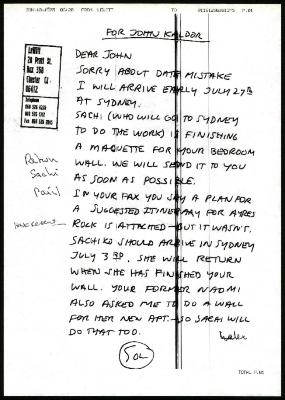 FROM LEWITT
TO
P.01
FOR JOHN KALDOR
LeWitt
20 Pratt St.
Box 350
Chester Ct
06412
Telephone
DEAR JOHN
SORRY ABOUT DATE MISTAKE
I WILL ARRIVE EARLY JULY 27TH
AT SYDNEY.
SACHI (WHO WILL GO TO SYDNEY
TO DO THE WORK) IS FINISHING
A MAQUETTE FOR YOUR BEDROOM
WALL. WE WILL SEND IT TO YOU
AS SOON AS POSSIBLE.
Sachi
IN YOUR FAX YOU SAY A PLAN FOR
A SUGGESTED ITINERARY FOR AYRES
ROCK IS ATTACHED — BUT IT WASN'T.
SACHIKO SHOULD ARRIVE IN SYDNEY
JULY 3RD. SHE WILL RETURN
WHEN SHE HAS FINISHED YOUR
WALL. YOUR FORMER NAOMI
ALSO ASKED ME TO DO A WALL
FOR HER NEW APT. — SO SACHI WILL
DO THAT TOO.
SOL
TOTAL P.01